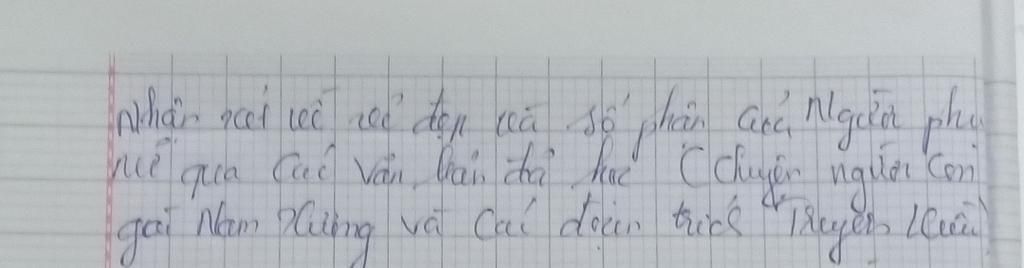 Nhận xét về vẻ đẹp và số phận của Người phụ
nữ qua các văn bản đã học (Chuyện người con
gái Nam Xương và các đoạn trích "Truyện Kiều"